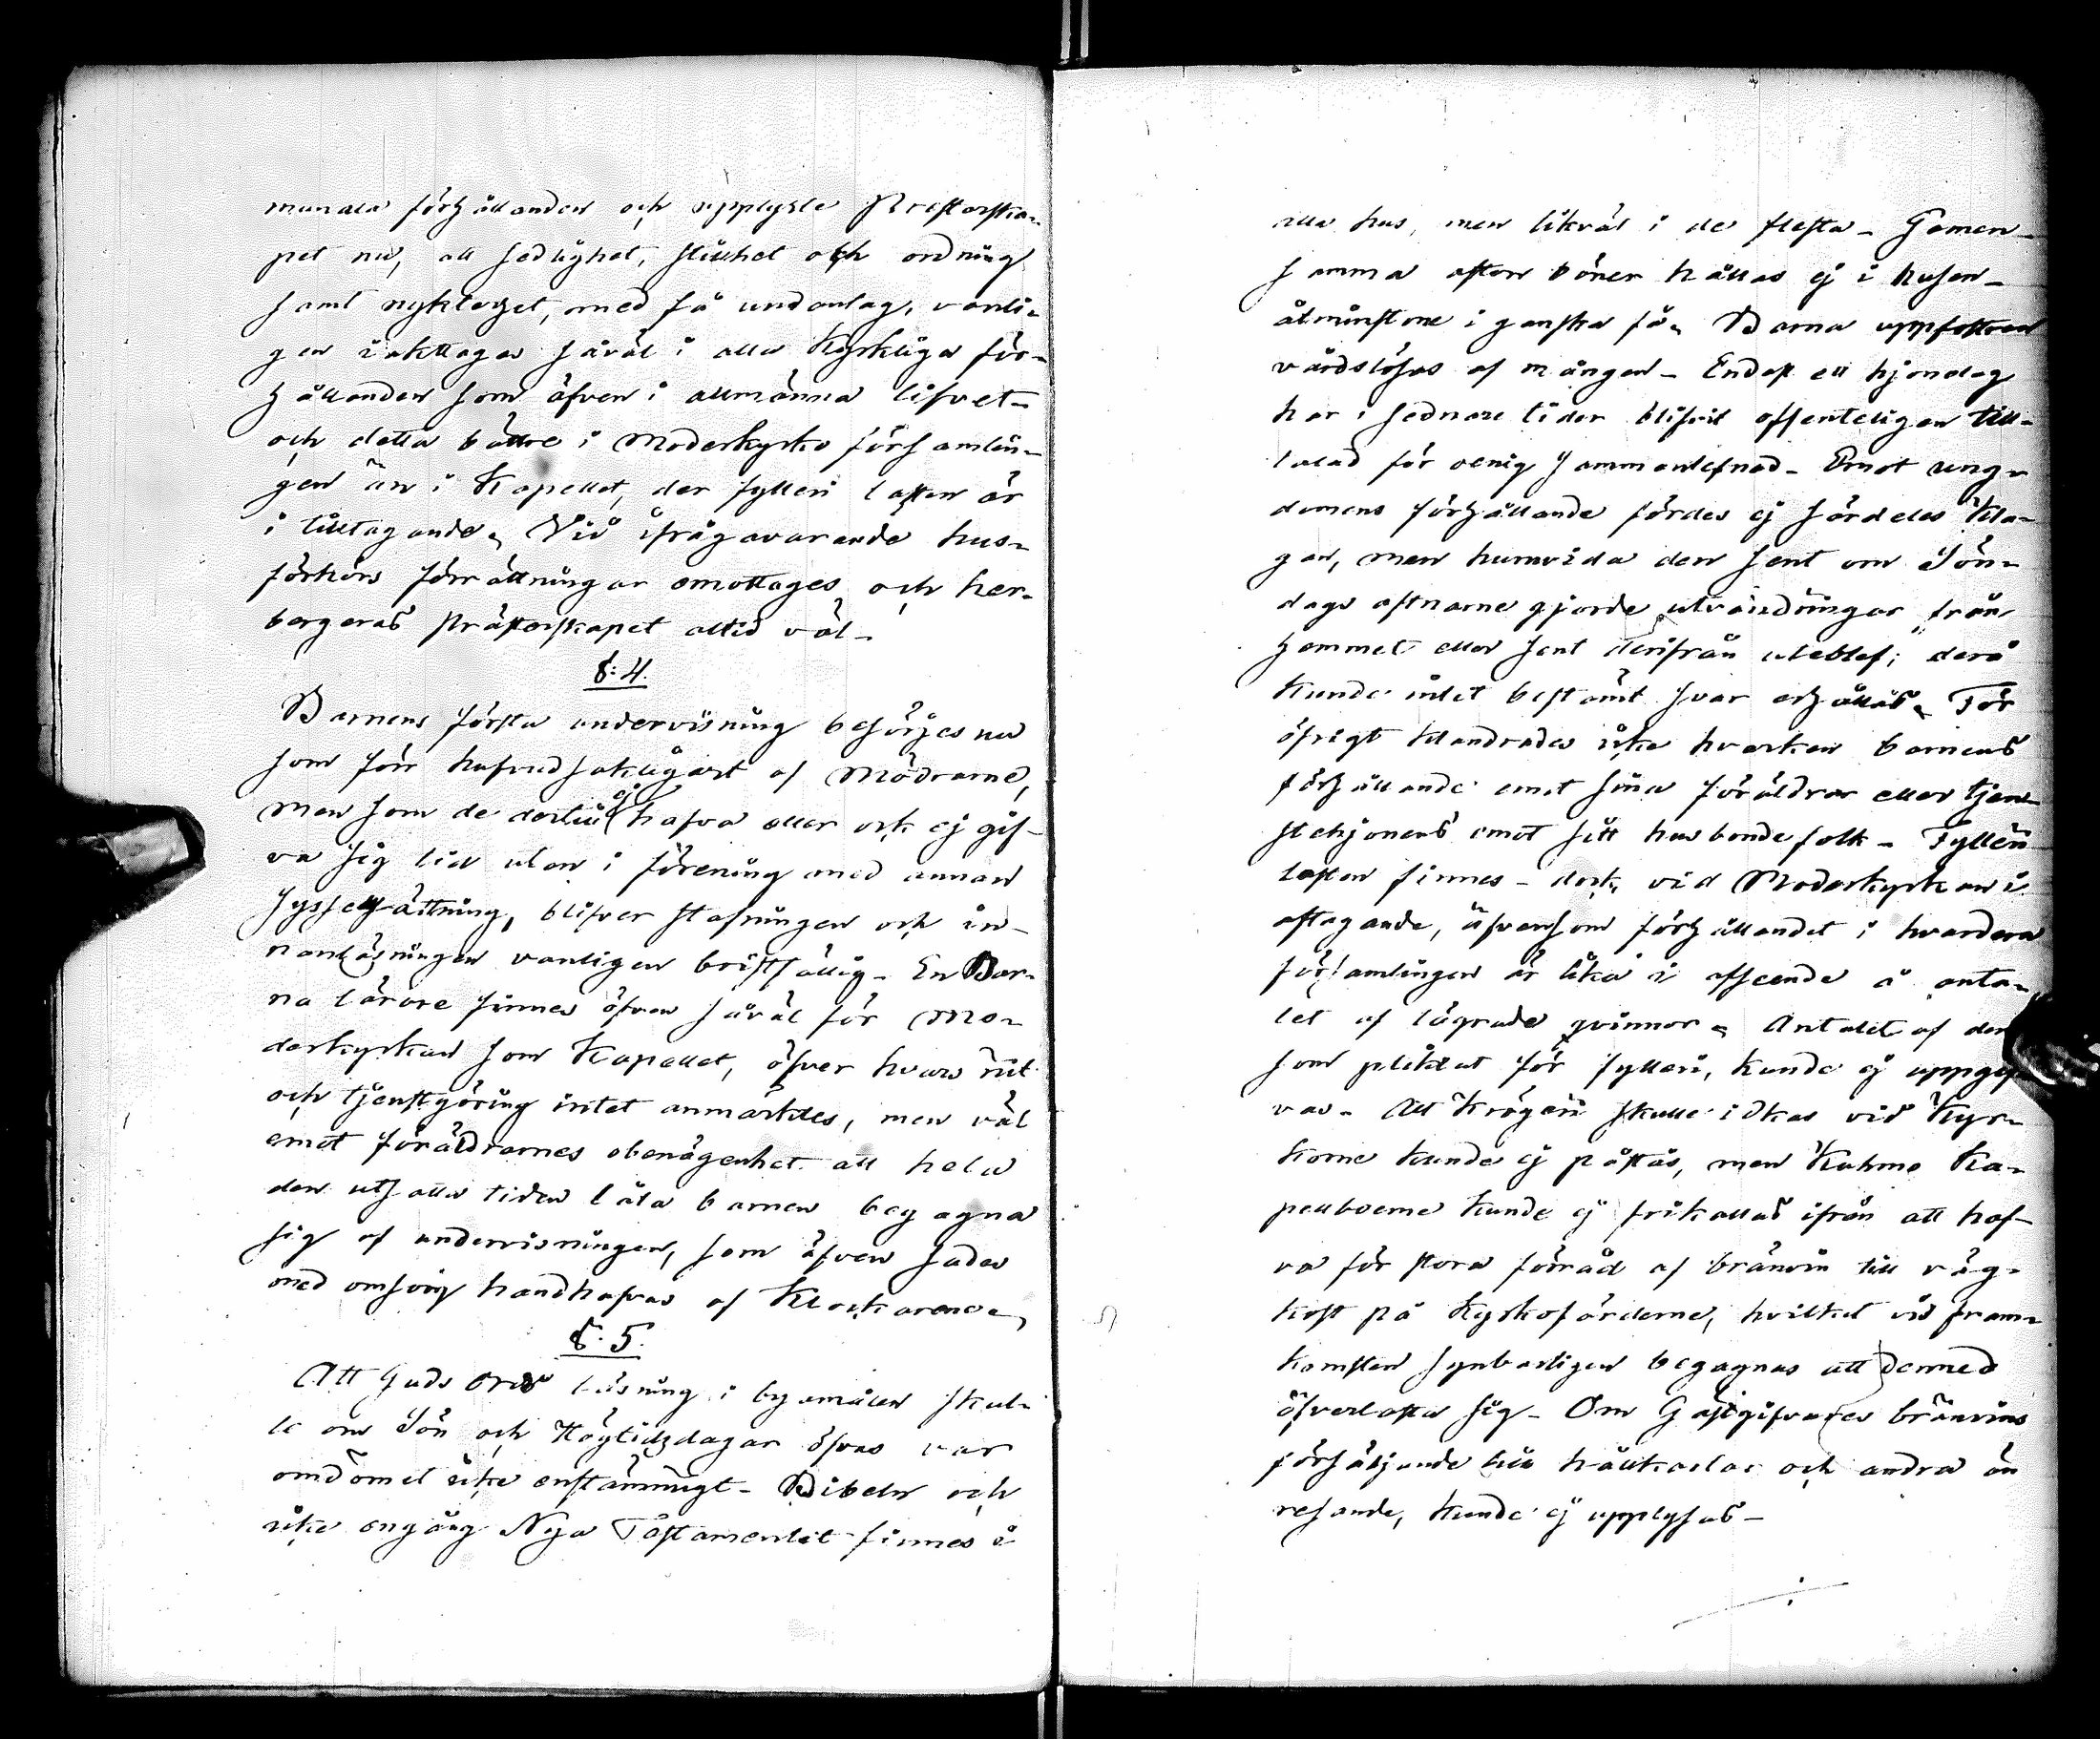 munala förhållanden och upplyste Presterska-
pet nu, att sedlighet, stillhet och ordning
samt nykterhet, med få undantag, vanli-
gen iakttages såväl i alla Kyrkliga för-
hållanden som äfven i allmänna lifvet -
och detta bättre i Moderkyrko församlin-
gen än i Kapellet, der fylleri lasten är
i tilltagande. Vid ifrågavarande hus-
förhörs förrättningar emottages och her-
bergeras Prästerskapet alltid väl -
§: 4.
Barnens första undervisning besörjes nu
som förr hufvudsakligast af Mödrarne,
men som de dertill ej hafva eller ock ej gif-
va sig tid utan i förening med annan
sysselsättning, blifver stafningen och in-
nanläsningen vanligen bristfällig - En Bar-
na lärare finnes äfven såväl för Mo-
derkyrkan som Kapellet, öfver hvars nit
och tjenstgöring intet anmärktes, men väl
emot föräldrarnes obenägenhet att hela
den utsatta tiden låta barnen begagna
sig af undervisningen, som äfven sades
med omsorg handhafvas af Klockarene,
§. 5.
Att Guds Ords läsning i byamålen skul-
le om Sön och Högtidsdagar öfvas var
omdömet icke enstämmigt - Bibeln och
icke engång Nya Testamentet finnes i
alla hus, men likväl i de flesta - Gemen-
samma afton böner hållas ej i husen -
åtminstone i ganska få. Barna uppfostran
vårdslösas af mången - Endast ett hjonelag
har i sednare tider blifvit offenteligen till-
talad för oenig sammanlefnad - Emot ung-
domens förhållande fördes ej särdeles kla-
gan, men huruvida den sent om Sön-
dags aftnarne gjorde utvandringar från
hemmet eller sent derifrån uteblef; derå
kunde intet bestämt svar erhållas. För
öfrigt klandrades icke hvarken barnens
förhållande emot sina föräldrar eller tjen-
stehjonens emot sitt husbondefolk - Fylleri
lasten finnes - dock vid Moderkyrkan i
aftagande, äfvensom förhållandet i hvardera
församlingen är lika i afseende å anta-
let af lägrade qvinnor. Antalet af dem
som pliktat för fylleri, kunde ej uppgif-
vas - Att krögeri skulle idkas vid Kyr-
korne kunde ej påstås, men Kuhmo Ka-
pellboerne kunde ej frikallas ifrån att haf-
va för stora förråd af bränvin till väg-
kost på Kyrkofärderne, hvilket vid fram-
komsten synbarligen begagnas att dermed
öfverlasta sig - Om Gästgifvares bränvins
försäljande till hållkarlar och andra än
resande, kunde ej upplysas -